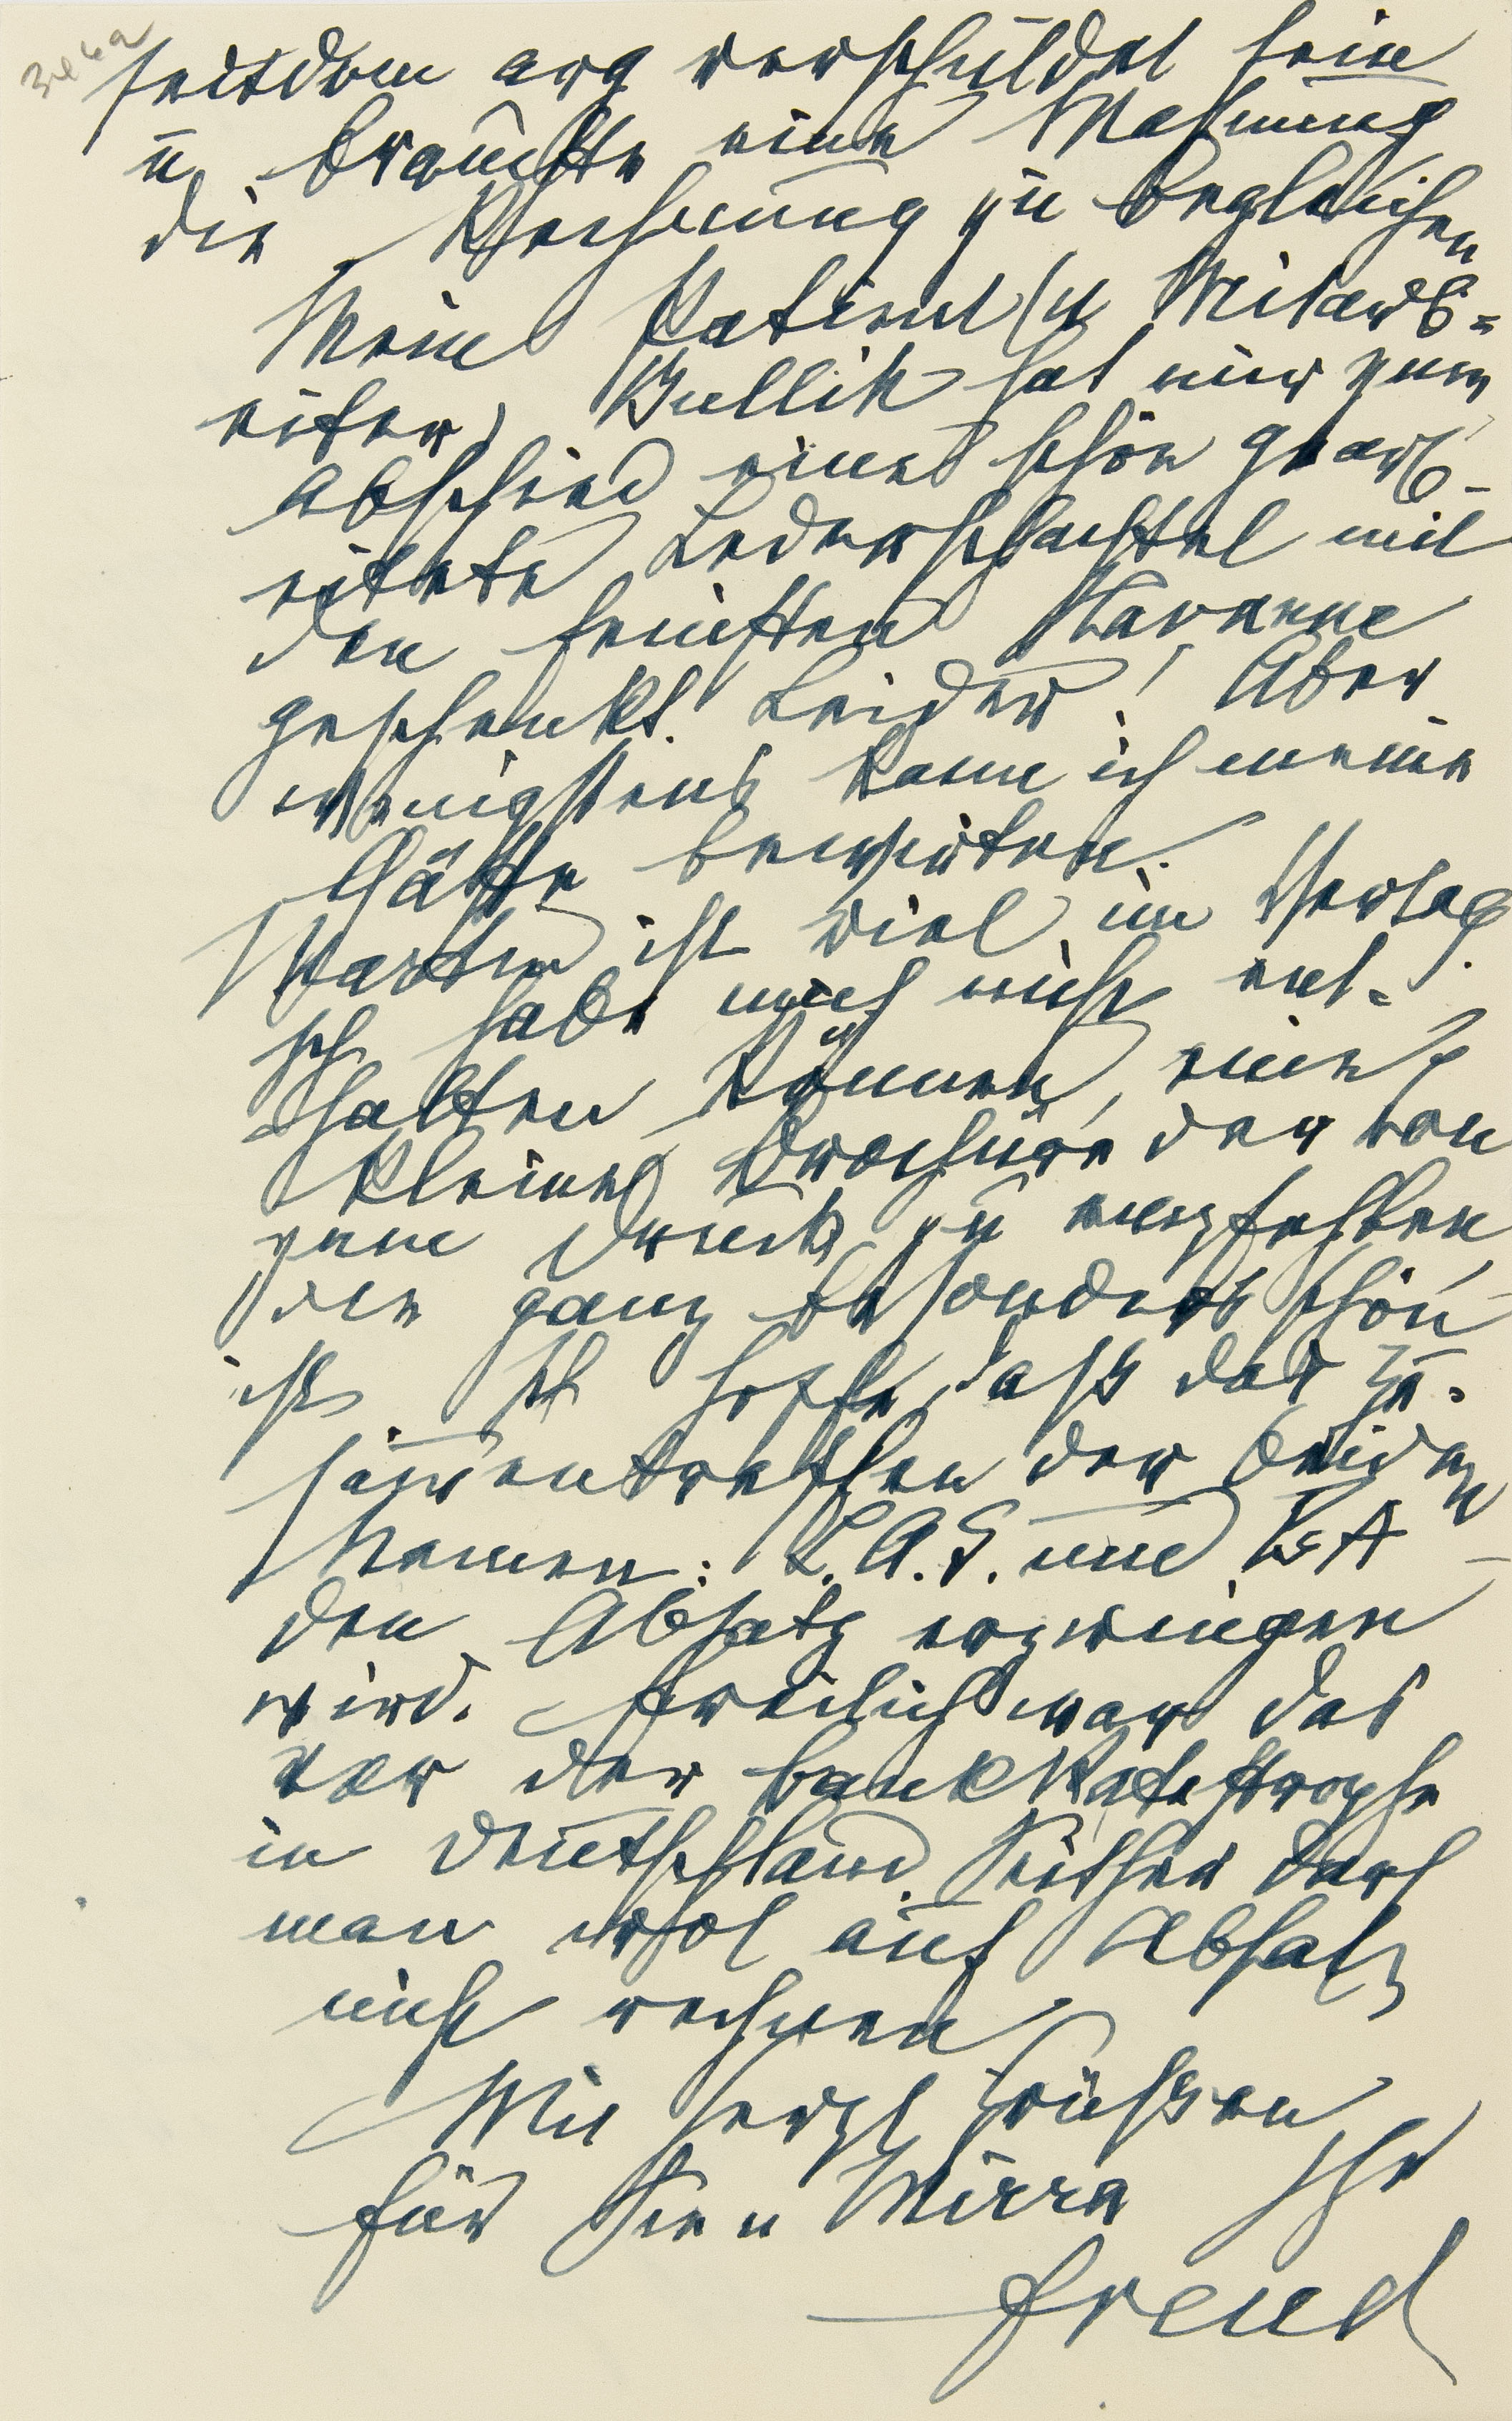 seitdem arg verschuldet sein
u brauchte eine Mahnung
die Rechnung zu begleichen
Mein Patient (u Mitarb=
eiter) Bullitt hat mir zum
Abschied eine schön gearb-
eitete Lederschachtel mit
den feinsten Havanna
geschenkt. Leider! Aber
wenigstens kann ich meine
Gäste bewirten.
Martin ist viel im Verlag.
Ich habe mich nicht ent-
halten können, eine
kleine Broschüre der von
zum Druck zu empfehlen
die ganz besonders schön
ist. Ich hoffe, dass das Zu-
sammentreffen der beiden
Namen: L.A.S. und
den Absatz erzwingen
wird. Freilich war das
vor der Bankkatastrophe
in Deutschland. Seither darf
man wol auf Absatz
nicht rechnen
Mit herzl Grüssen
für Sie u Mirra Ihr
Freud